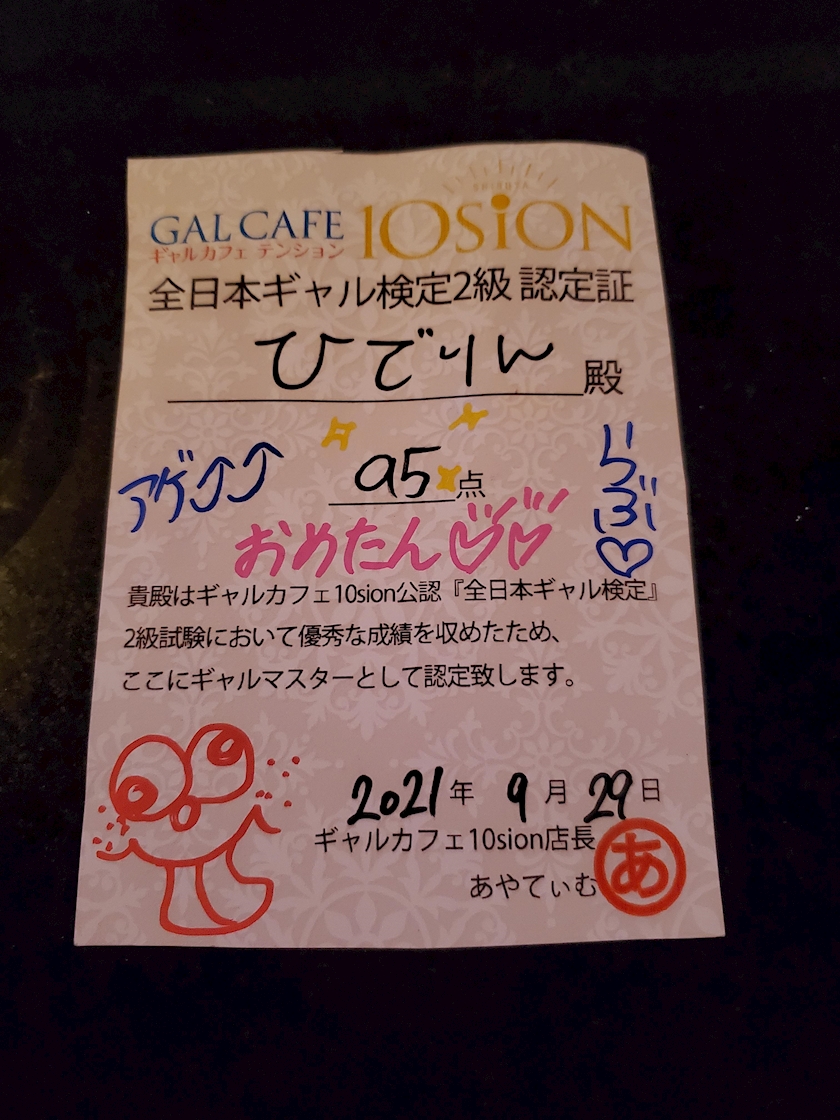 SHIBUYA
GAL CAFE 10sion
ギャルカフェ テンション
全日本ギャル検定2級 認定証
ひでりん 殿
95点
アゲ⤴⤴
らぶ♡
おめたん♡♡
貴殿はギャルカフェ10sion公認『全日本ギャル検定』
2級試験において優秀な成績を収めたため、
ここにギャルマスターとして認定致します。
2021年 9月 29日
ギャルカフェ10sion店長
あやてぃむ
あ